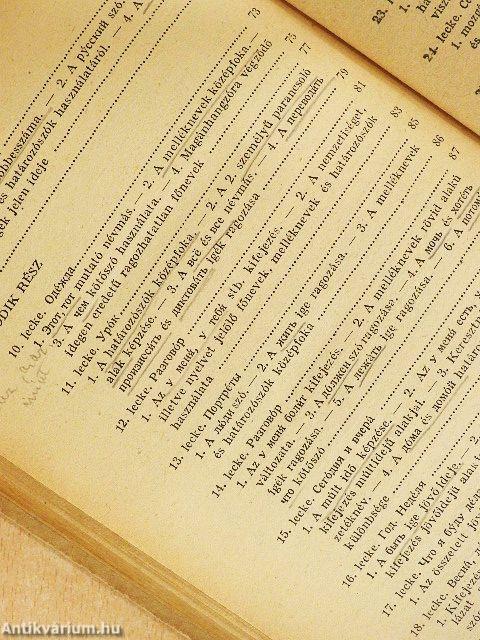 többesszáma. — 2. A русский szó.
és határozószók használatáról. — 4. A
igék jelen ideje
73
ODIK RÉSZ
10. lecke. Одежда
1. Этот, тот mutató névmás. — 2. A melléknevek középfoka. —
3. A чем kötőszó használata. — 4. Magánhangzóra végződő
idegen eredetű ragozhatatlan főnevek
75
11. lecke. Урок
77
1. A határozószók középfoka. — 2. A 2. személyű parancsoló
alak képzése. — 3. A всё és все névmás. — 4. A переводить
произносить és диктовать igék ragozása
79
12. lecke. Разговор
81
1. Az у меня, у тебя stb. kifejezés. — 2. A nemzetiséget,
illetve nyelvet jelölő főnevek, melléknevek és határozószók
használata
83
13. lecke. Портреты
85
1. A люди szó. — 2. A жить ige ragozása. — 3. A melléknevek
és határozószók középfoka
86
14. lecke. Разговор
87
1. Az у меня болит kifejezés. — 2. A melléknevek rövid alakú
változata. — 3. A должен szó ragozása. — 4. A мочь és хотеть
igék ragozása. — 5. A лежать ige ragozása. — 6. A потому
что kötőszó
15. lecke. Сегодня и вчера
1. A múlt idő képzése. — 2. Az у меня есть,
kifejezés múltidejű alakjai. — 3.
zetéknév. — 4. A дома és домой határoz
különbsége
16. lecke. Год. Неделя
1. A быть ige jövő ideje. — 2.
kifejezés jövőidejű alak
17. lecke. Что я буду дел
1. Az összetett jövő
18. lecke. Весна,
1. Kifejez
lázat
23.
24. lecke.
1. moz
és
Antikvárium.hu